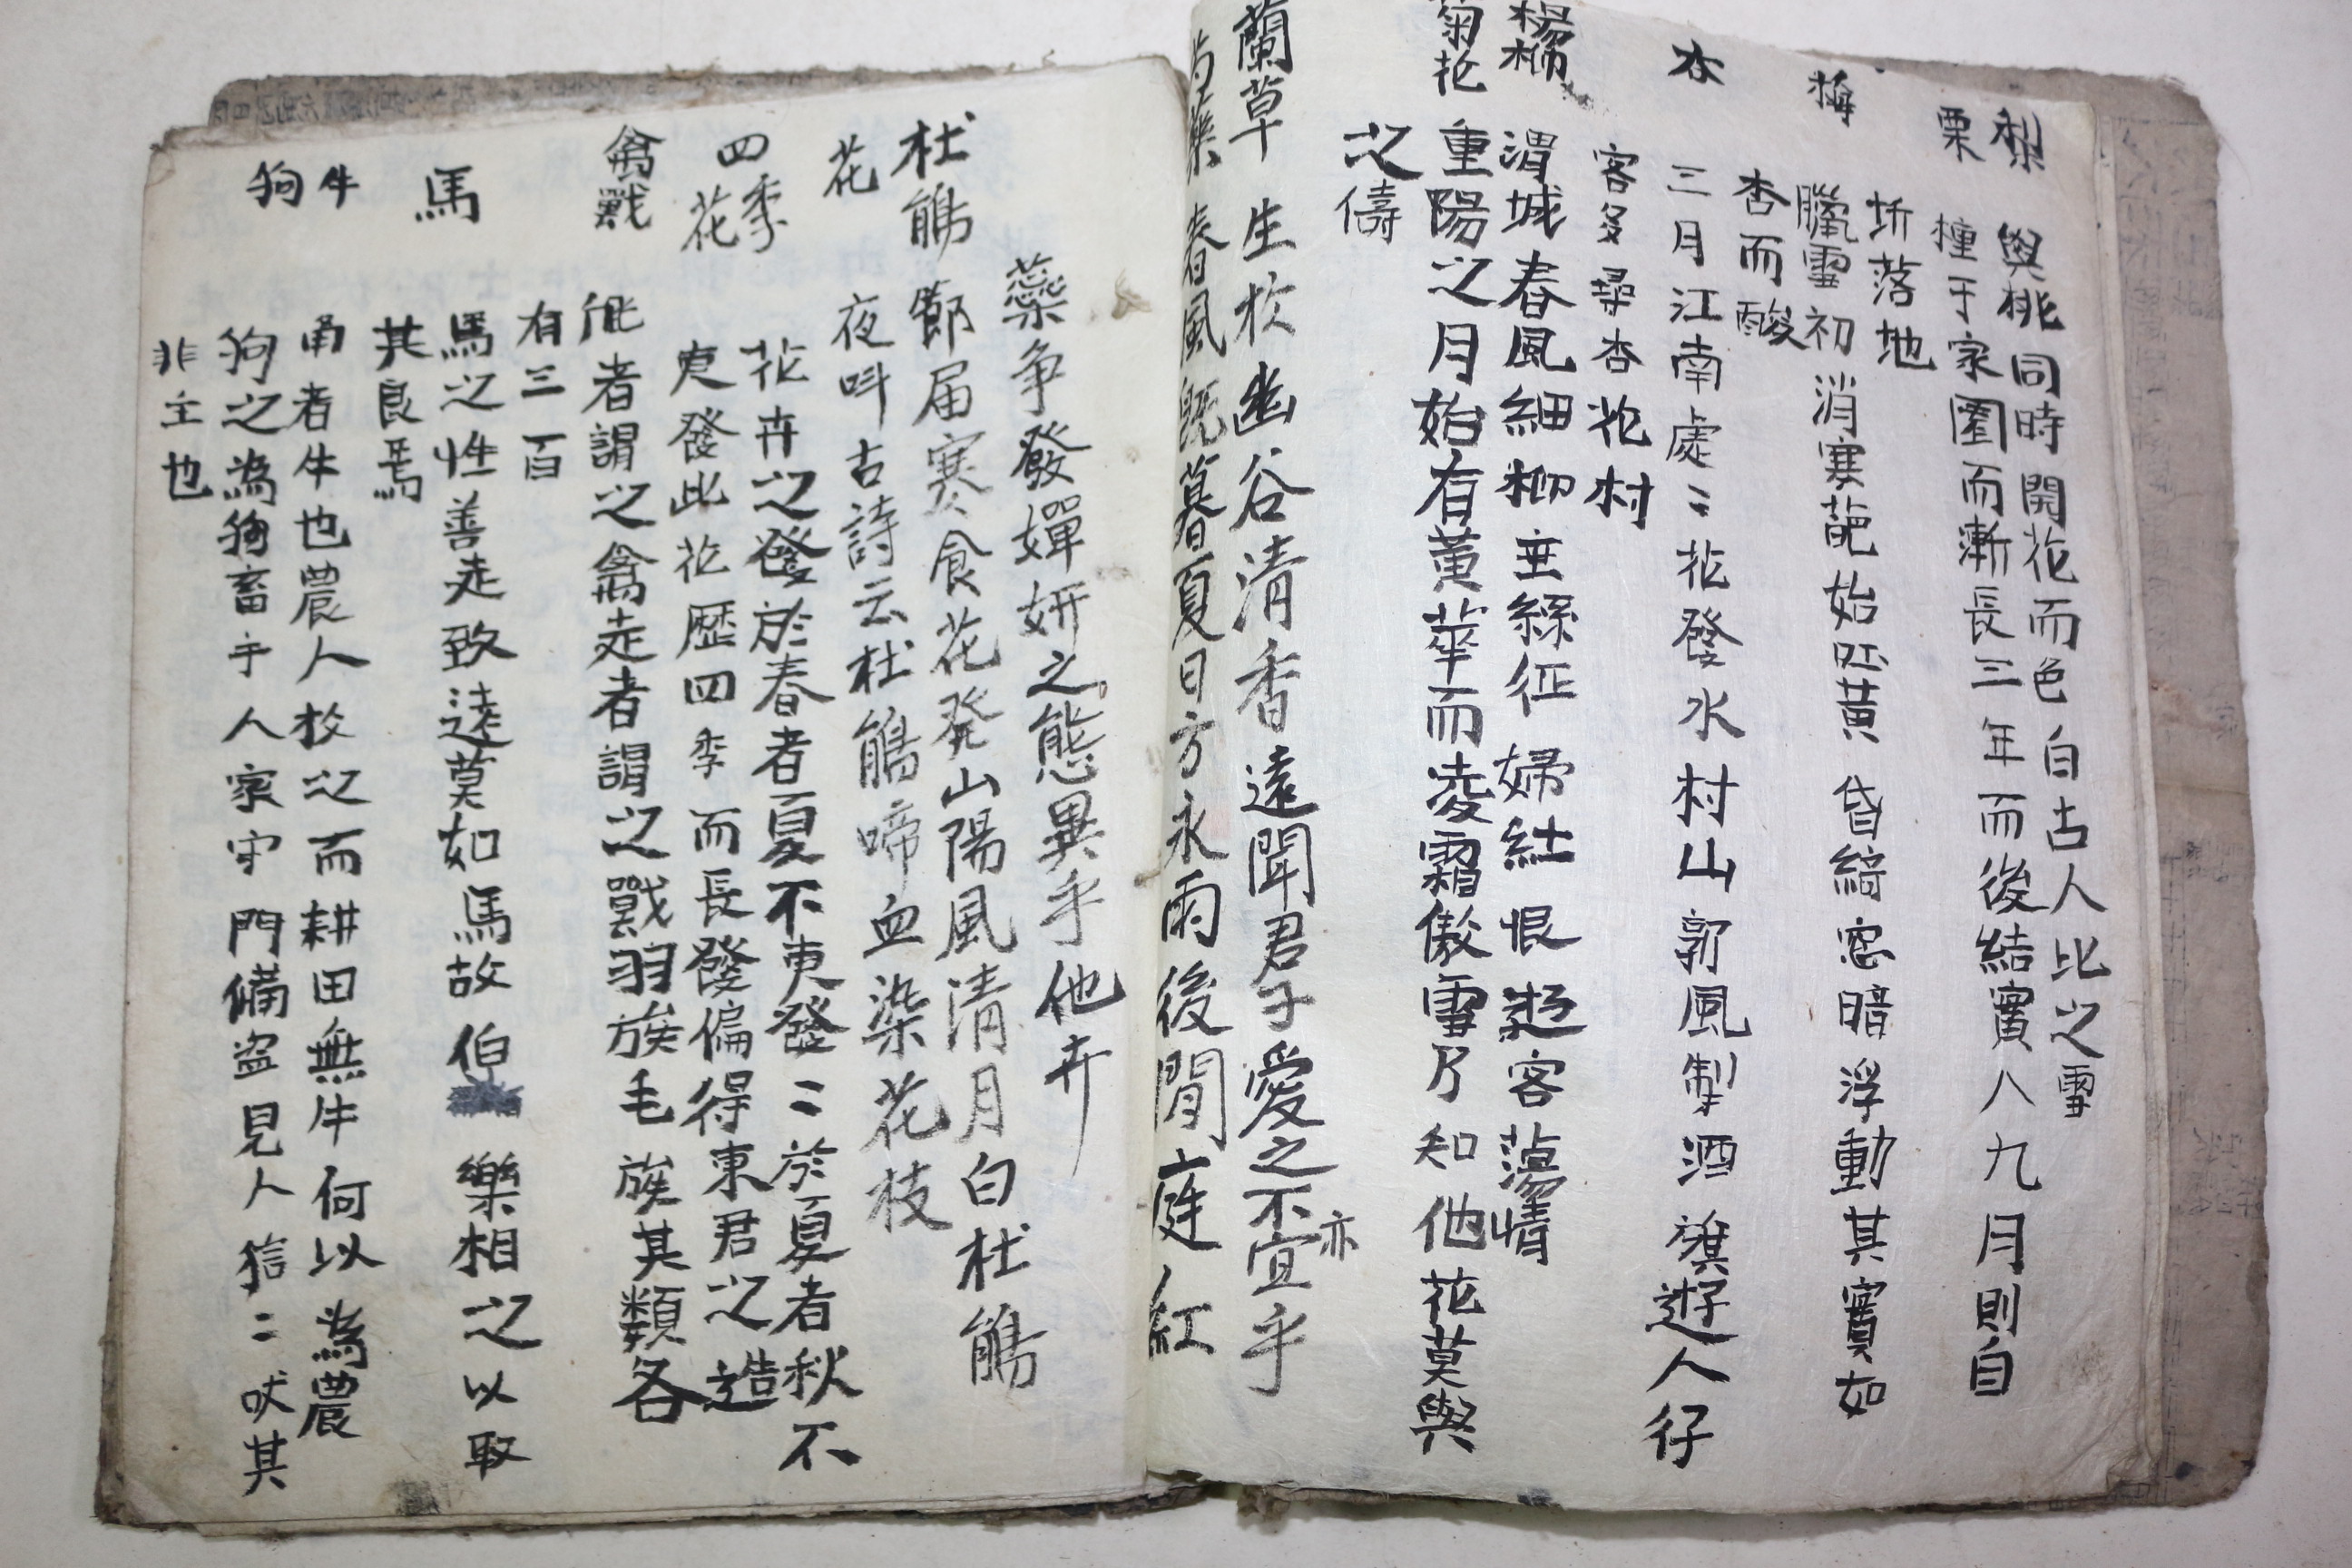 梨 與桃同時開花而色白古人比之雪
栗 種于家園而漸長三年而後結實八九月則自
坼落地
梅 臘雪初消寒葩始坼黃昏綺窓暗浮動其實如
杏而酸
杏 三月江南處〻花發水村山郭風製酒旗遊人仔
客多尋杏花村
楊柳 渭城春風細柳垂絲征婦紝恨遊客蕩情
菊花 重陽之月始有黃華而凌霜傲雪乃知他花莫與
之儔
蘭草 生於幽谷清香遠聞君子愛之不亦宜乎
芍藥 春風旣暮夏日方永雨後閒庭紅
蘂爭發嬋姸之態異乎他卉
杜鵑 節届寒食花發山陽風清月白杜鵑
花 夜呌古詩云杜鵑啼血染花枝
四季 花卉之發於春者夏不更發〻於夏者秋不
花 更發此花歷四季而長發偏得東君之造
禽獸 飛者謂之禽走者謂之獸羽族毛族其類各
有三百
馬 馬之性善走致遠莫如馬故伯樂相之以取
其良焉
牛 甪者牛也農人校之而耕田無牛何以為農
狗 狗之為狗畜于人家守門備盜見人狺〻吠其
非主也